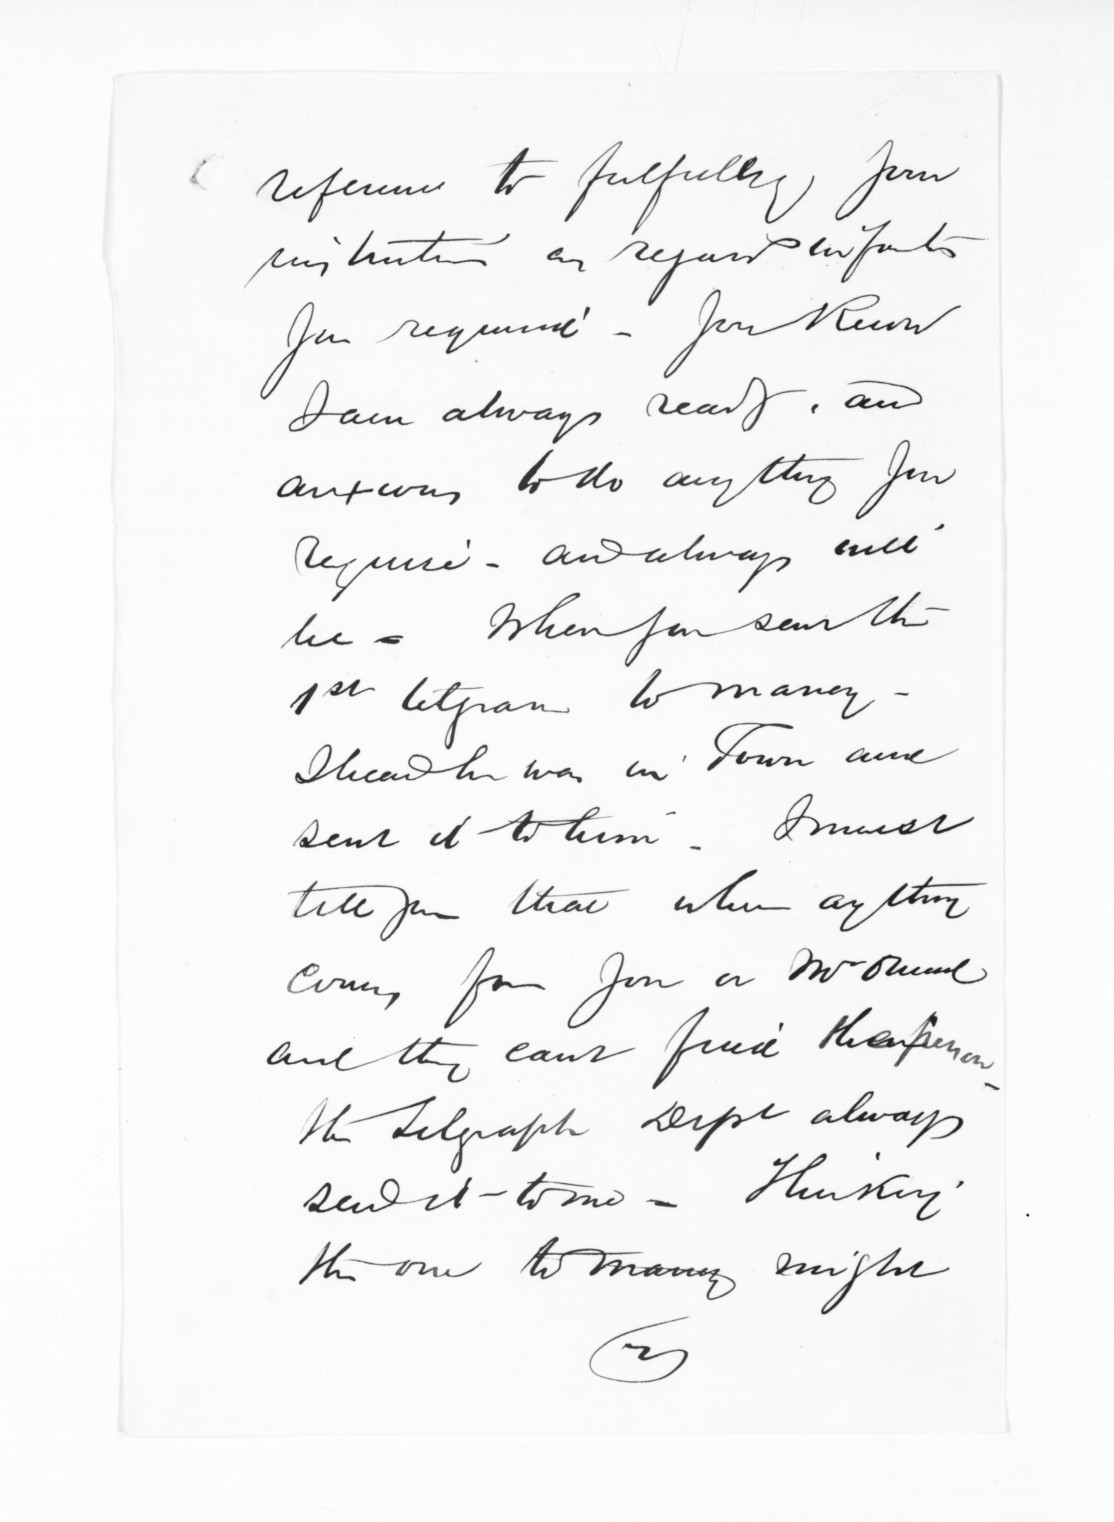 reference to fulfilling your
instructions as regards infants
you required - you Know
I am always ready, and
anxious to do anything you
require - and always will
be - When you sent the
1st telegram to maney -
I heard he was in Town and
sent it to him - I must
tell you that when anything
comes from you or Mr Ormond
and they cant find the person -
the Telegraph Dept always
send it to me - Thinking
the one to maney might
(2)